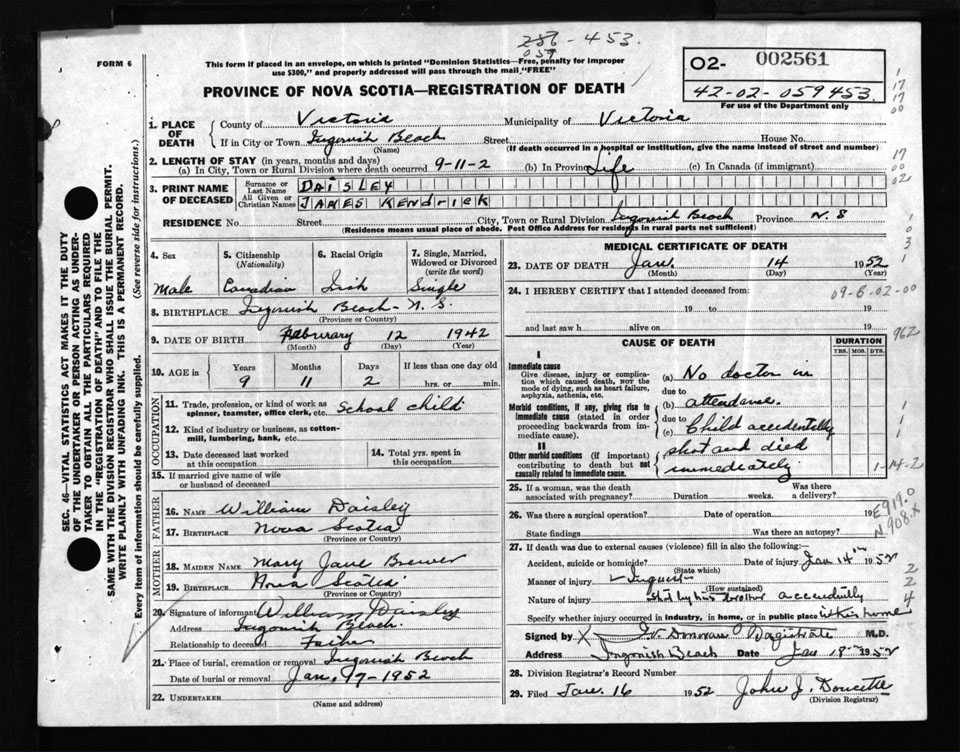 286 - 453.
059
FORM 6
This form if placed in an envelope, on which is printed "Dominion Statistics—Free, penalty for improper
use $300," and properly addressed will pass through the mail "FREE"
PROVINCE OF NOVA SCOTIA—REGISTRATION OF DEATH
02- 002561
42-02-059453.
For use of the Department only
1. PLACE OF DEATH { County of Victoria Municipality of Victoria
If in City or Town Ingonish Beach Street House No.
(Name) (If death occurred in a hospital or institution, give the name instead of street and number)
2. LENGTH OF STAY (in years, months and days)
(a) In City, Town or Rural Division where death occurred 9-11-2 (b) In Province Life (c) In Canada (if immigrant)
3. PRINT NAME OF DECEASED { Surname or Last Name DAISLEY
All Given or Christian Names JAMES KENDRICK
RESIDENCE No. Street City, Town or Rural Division Ingonish Beach Province N.S
(Residence means usual place of abode. Post Office Address for residents in rural parts not sufficient)
4. Sex Male
5. Citizenship (Nationality) Canadian
6. Racial Origin Irish
7. Single, Married, Widowed or Divorced (write the word) Single
8. BIRTHPLACE Ingonish Beach - N.S.
(Province or Country)
9. DATE OF BIRTH February 12 1942
(Month) (Day) (Year)
10. AGE in { Years Months Days If less than one day old
9 11 2 hrs. or min.
OCCUPATION
11. Trade, profession, or kind of work as
spinner, teamster, office clerk, etc. School child
12. Kind of industry or business, as cotton-
mill, lumbering, bank, etc.
13. Date deceased last worked
at this occupation
14. Total yrs. spent in
this occupation
15. If married give name of wife
or husband of deceased
FATHER
16. NAME William Daisley
17. BIRTHPLACE Nova Scotia
(Province or Country)
MOTHER
18. MAIDEN NAME Mary Jane Brewer
19. BIRTHPLACE Nova Scotia
(Province or Country)
20. Signature of informant William Daisley
Address Ingonish Beach.
Relationship to deceased Father
21. Place of burial, cremation or removal Ingonish Beach
Date of burial or removal Jan, 17-1952
22. UNDERTAKER
(Name and address)
MEDICAL CERTIFICATE OF DEATH
23. DATE OF DEATH Jan 14 1952
(Month) (Day) (Year)
24. I HEREBY CERTIFY that I attended deceased from:
09-6-02-00
19 to 19
and last saw h alive on 19
962
CAUSE OF DEATH
DURATION
YRS. MOS. DYS.
I
Immediate cause
Give disease, injury or complica-
tion which caused death, NOT the
mode of dying, such as heart failure,
asphyxia, asthenia, etc.
(a) No doctor in
due to
Morbid conditions, if any, giving rise to
immediate cause (stated in order
proceeding backwards from im-
mediate cause).
(b) attendance.
due to
(c) Child accidentally
II
Other morbid conditions (if important)
contributing to death but not
causally related to immediate cause.
shot and died
immediately.
1-14-2
25. If a woman, was the death
associated with pregnancy? Duration weeks. Was there
a delivery?
26. Was there a surgical operation? Date of operation 19
E919.0
N908.X
State findings Was there an autopsy?
27. If death was due to external causes (violence) fill in also the following:—
Accident, suicide or homicide? Date of injury Jan 14th 1952
(State which)
Manner of injury Inquest
(How sustained)
Nature of injury Shot by his brother accidentally
Specify whether injury occurred in industry, in home, or in public place in his home
Signed by X Donovan Magistrate M.D.
Address Ingonish Beach Date Jan 1952
28. Division Registrar's Record Number
29. Filed Jan. 16 1952 John J. Doucette
(Division Registrar)
SEC. 46—VITAL STATISTICS ACT MAKES IT THE DUTY
OF THE UNDERTAKER OR PERSON ACTING AS UNDER-
TAKER TO OBTAIN ALL THE PARTICULARS REQUIRED
IN THE "REGISTRATION OF DEATH" AND TO FILE THE
SAME WITH THE DIVISION REGISTRAR WHO SHALL ISSUE THE BURIAL PERMIT.
WRITE PLAINLY WITH UNFADING INK. THIS IS A PERMANENT RECORD.
Every item of information should be carefully supplied. (See reverse side for instructions.)